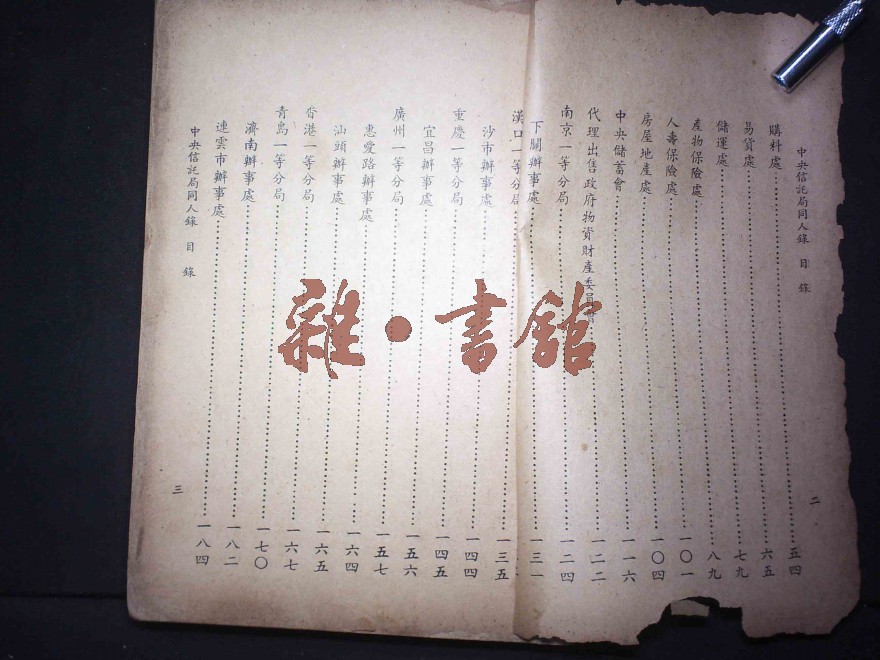 中央信託局同人錄 目錄
購料處……五四
易貨處……六五
儲運處……七九
產物保險處……八九
人壽保險處……一〇一
房屋地產處……一〇四
中央儲蓄會……一一六
代理出售政府物資財產委員會……一二二
南京一等分局……一二四
下關辦事處……一三一
二
漢口一等分局……一三五
沙市辦事處……一四四
重慶一等分局……一四五
宜昌辦事處……一五六
廣州一等分局……一五七
惠愛路辦事處……一六四
汕頭辦事處……一六五
香港一等分局……一六七
青島一等分局……一七〇
濟南辦事處……一八二
連雲市辦事處……一八四
中央信託局同人錄 目錄
三
雜·書館